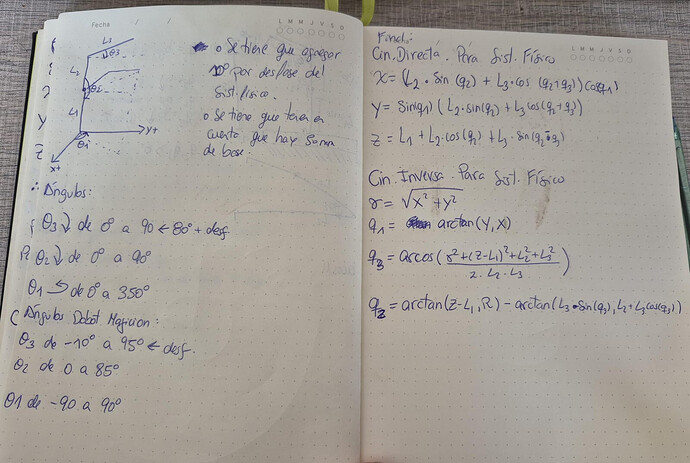 Fecha
L M M J V S D
L3
θ3
L2
θ2
L1
θ1
y+
x+
o Se tiene que agregar
10° por desfase del
Sist. físico.
o Se tiene que tener en
cuenta que hay 50mm
de base.
∴ Ángulos:
θ3 de 0° a 90 ← 80° + desf
θ2 de 0° a 90°
θ1 de 0° a 350°
Ángulos Dobot Magician:
θ3 de -10° a 95° ← desf.
θ2 de 0 a 85°
θ1 de -90 a 90°
L M M J V S D
Final:
Cin. Directa. Para Sist. Físico
x = (L2 · Sin (q2) + L3 · cos (q2+q3)) cos(q1)
y = Sin(q1) (L2 · sin(q2) + L3 cos(q2+q3))
z = L1 + L2 · cos(q2) + L3 · sin(q2+q3)
Cin. Inversa. Para Sist. Físico
r = √x² + y²
q1 = arctan(Y, X)
q3 = arcos( r² + (z-L1)² + L2² + L3² / 2 · L2 · L3 )
q2 = arctan(z-L1, R) - arctan(L3 · Sin(q3), L2 + L3 cos(q3))